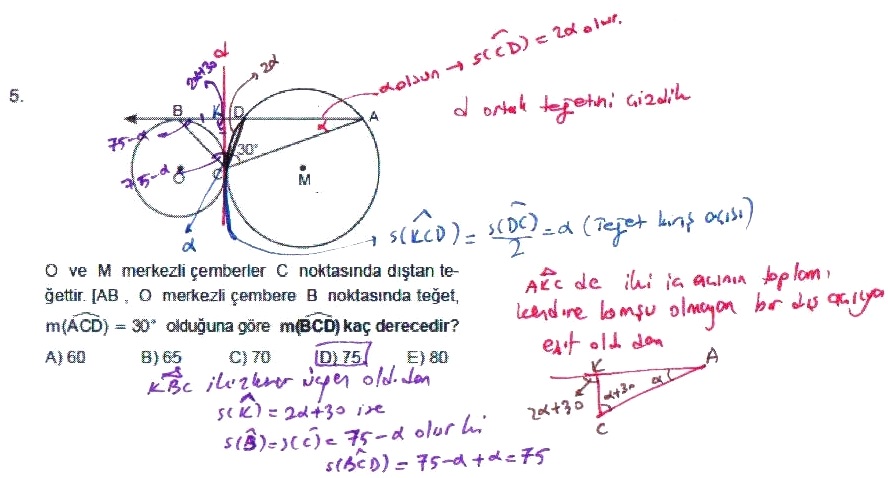 5.
d
2α+30
2α
α olsun → s(CD) = 2α olur.
d ortak teğetini çizdik
B
K
D
A
75-α
α
30°
75-α
O
C
M
α
s(KCD) = s(DC)/2 = α (Teğet kiriş açısı)
O ve M merkezli çemberler C noktasında dıştan te-
ğettir. [AB , O merkezli çembere B noktasında teğet,
m(ACD) = 30° olduğuna göre m(BCD) kaç derecedir?
A) 60 B) 65 C) 70 D) 75 E) 80
AKC de iki iç açının toplamı
kendine komşu olmayan bir dış açıya
eşit old. dan
K
A
2α+30
α+30
α
C
KBC ikizkenar üçgen old. dan
s(K) = 2α+30 ise
s(B) = s(C) = 75-α olur ki
s(BCD) = 75-α+α = 75